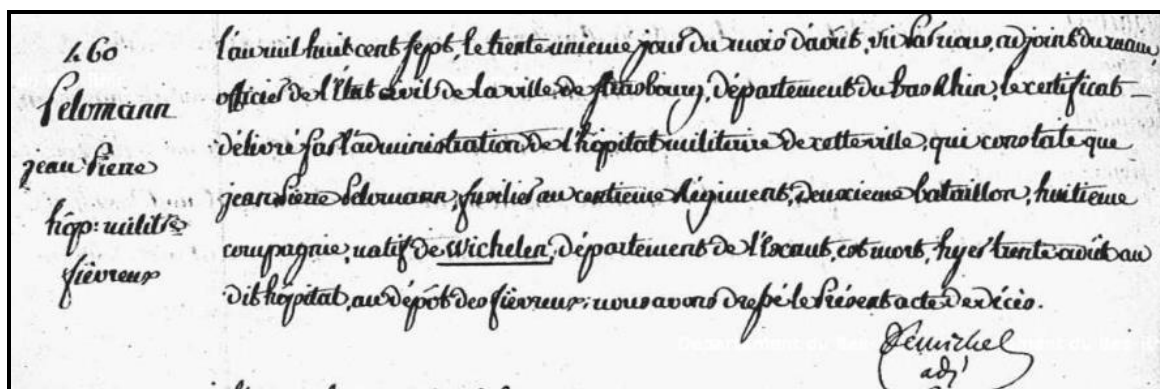 460
Selomann
jean Pierre
hôp: milit.re
fiévreux
l'an mil huit cent sept, le trente unieme jour du mois d'août, vu par nous, adjoint du maire,
officier de l'État civil de la ville de Strasbourg, département du bas Rhin, le certificat
délivré par l'administration de l'hôpital militaire de cette ville, qui constate que
jean Pierre Selomann, fusilier au centieme Régiment, deuxieme bataillon, huitieme
compagnie, natif de Wichelen, département de l'Escaut, est mort, hyer trente août au
dit hôpital, au dépôt des fiévreux; nous avons dressé le Présent acte de décès.
Demichel
adj.t